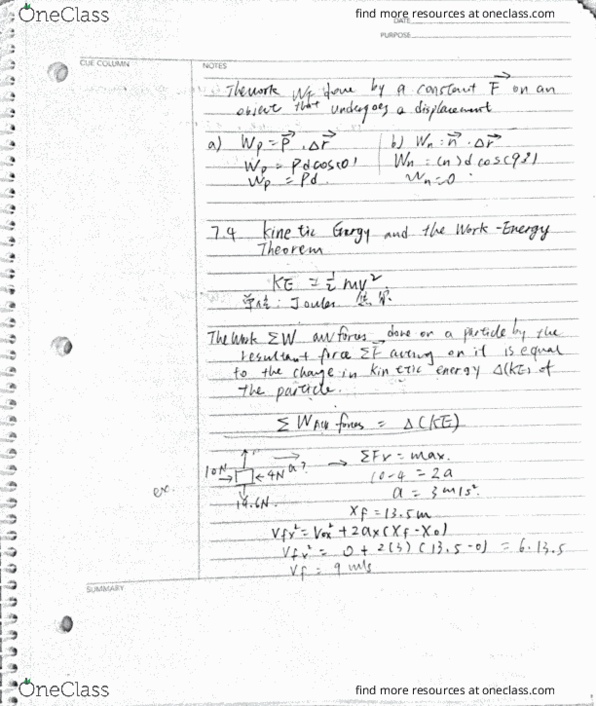 OneClass
find more resources at oneclass.com
DATE
PURPOSE
CUE COLUMN
NOTES
The work WF done by a constant F on an
object that undergoes a displacement
a) Wp = P · Δr
b) Wn = n · Δr
Wp = Pd cos(0)
Wn = (n) d cos(90)
Wp = Pd.
Wn = 0
7.4 kinetic Energy and the Work-Energy
Theorem
KE = ½ mv²
单位: Joules
The Work ΣW all forces done on a particle by the
resultant force ΣF acting on it is equal
to the change in kinetic energy Δ(KE) of
the particle.
ΣW All forces = Δ(KE)
ex
10N
4N
a?
19.6N
→ ΣFx = max.
10-4 = 2a
a = 3 m/s².
xf = 13.5m
Vfx² = Vox² + 2ax(xf - xo)
Vfx² = 0 + 2(3)(13.5-0) = 6·13.5
Vf = 9 m/s
SUMMARY
OneClass
find more resources at oneclass.com